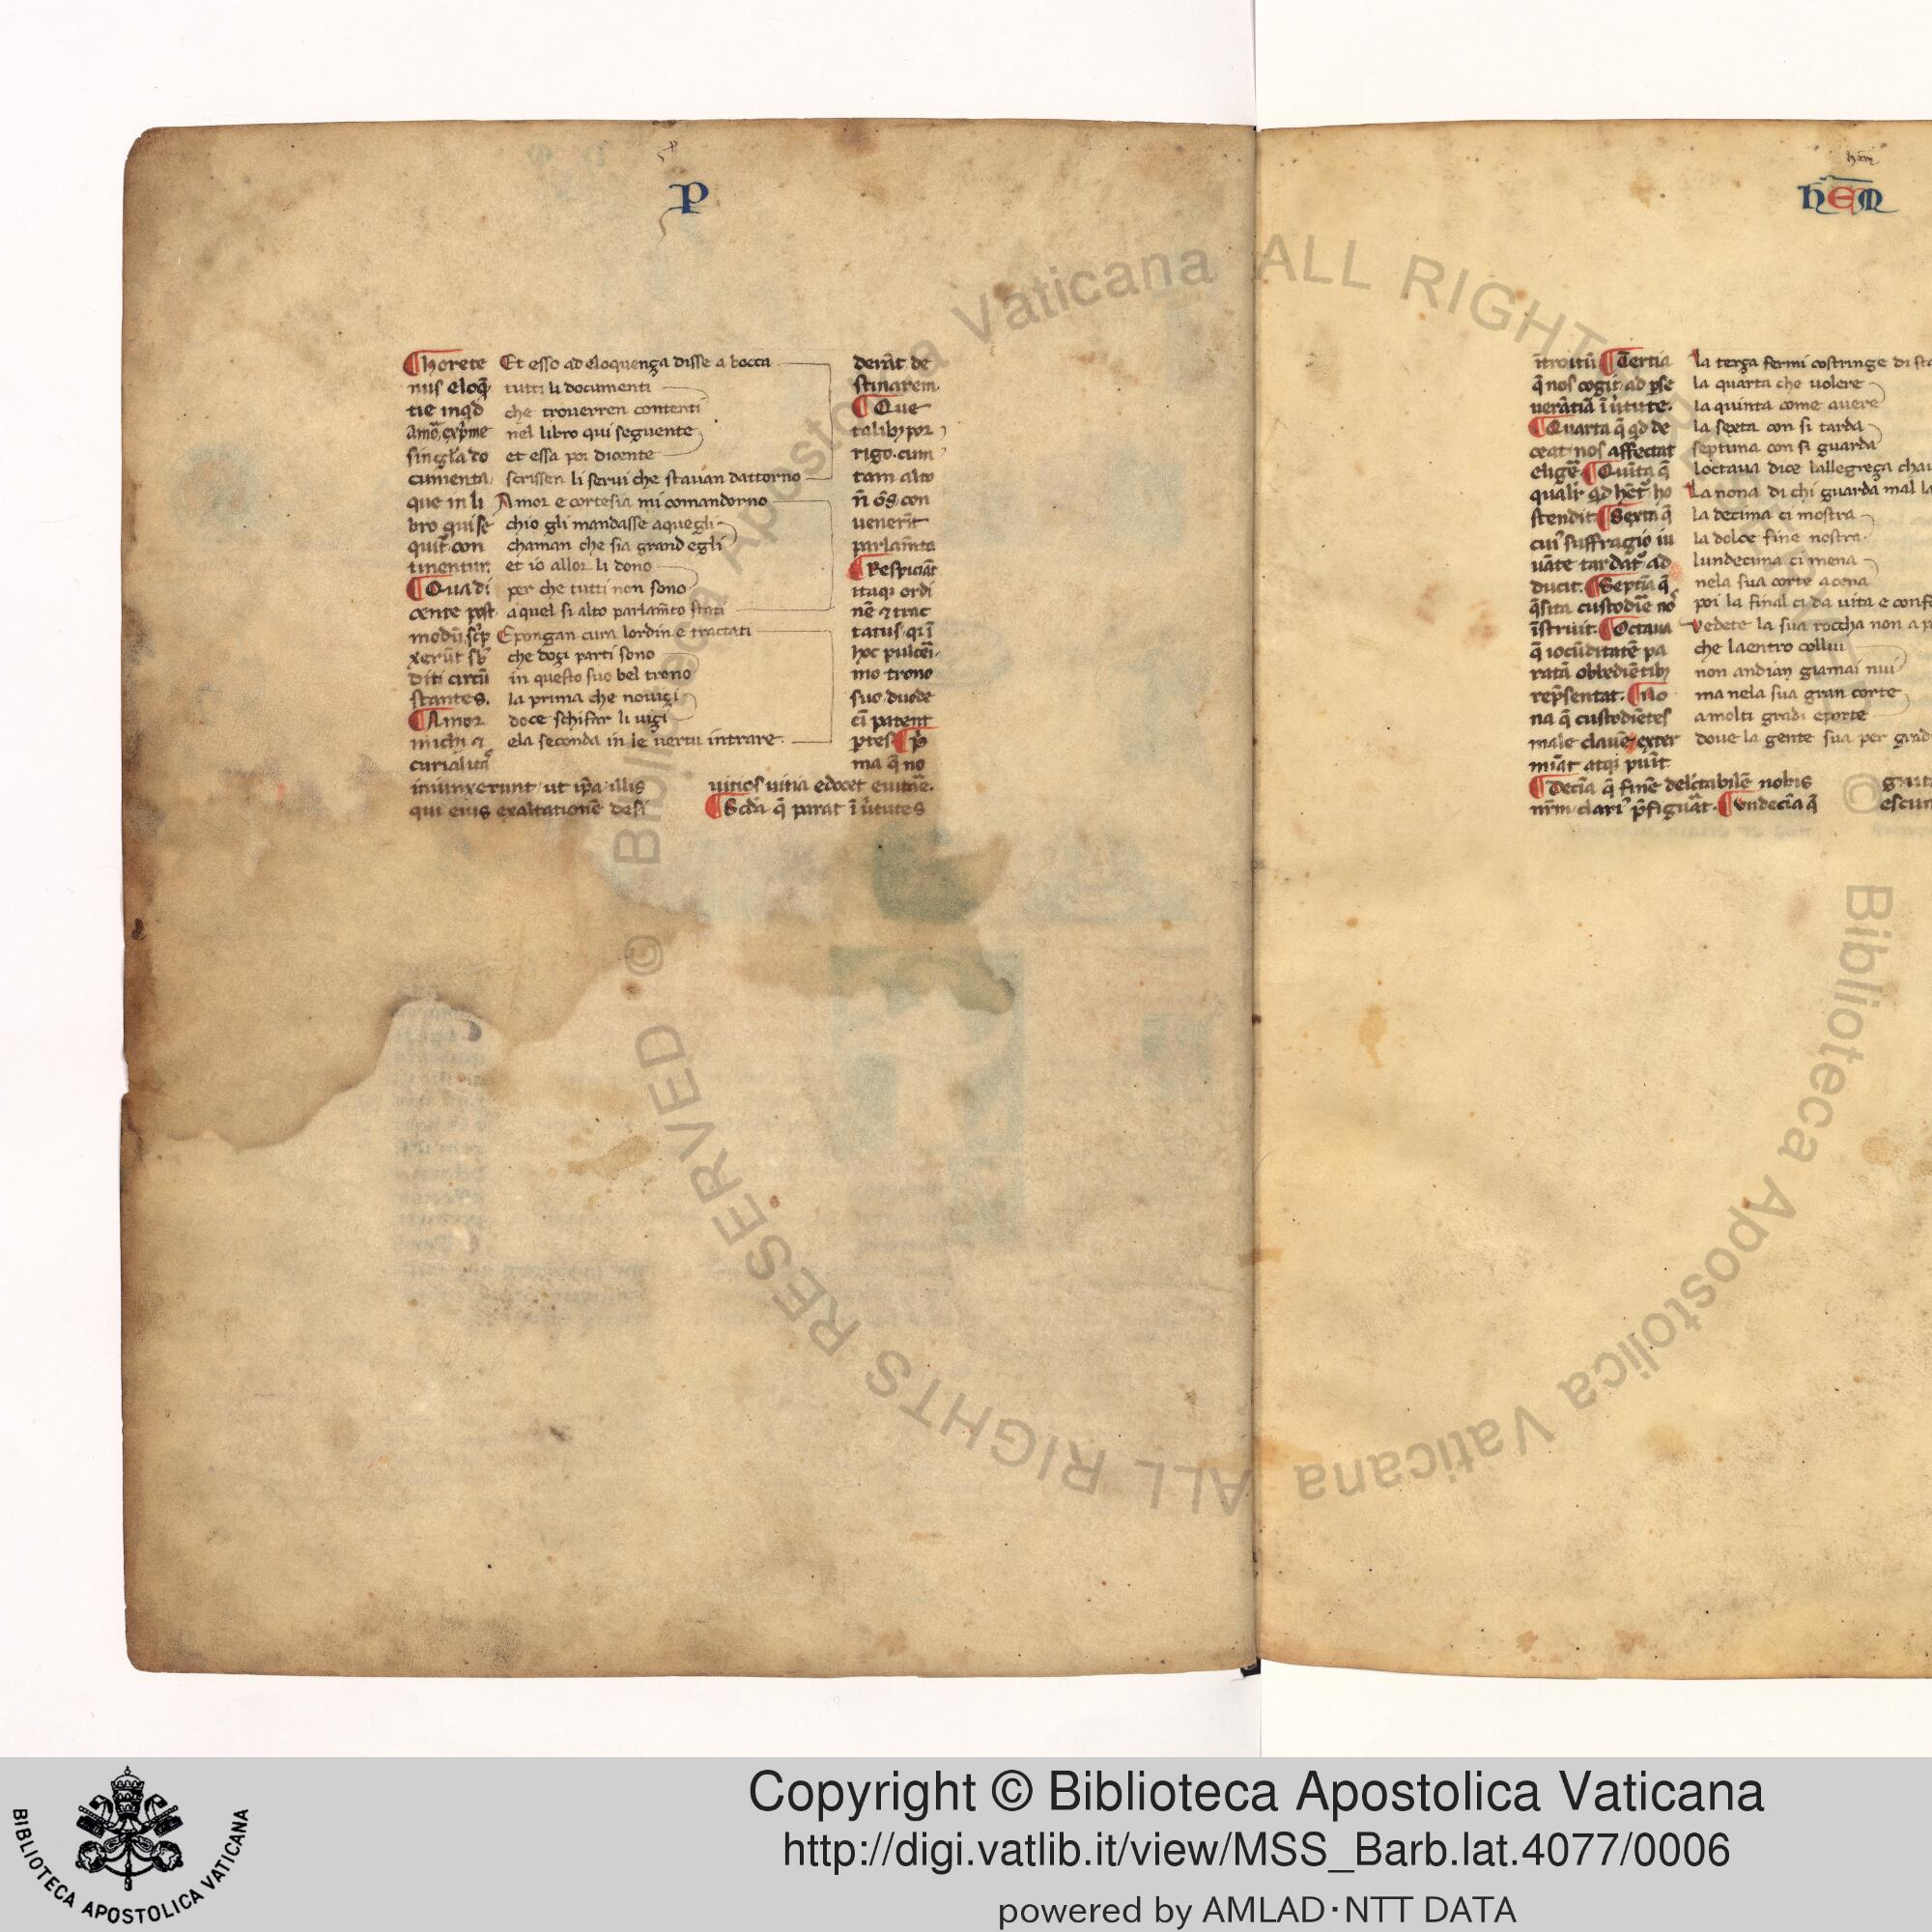 P
¶ horete
nus eloq̄
tie inq̄d
Amo᷑ exp̱me
singl̄a do
cumenta
que in li
bro qui se
quit᷑ con
tinentur.
¶ Qua di
cente post
modū, sc͛p
xerūt sb̄
diti circū
stantes.
¶ Amor
michi ⁊
curialitas
iniunxerunt ut ip̄a illis
qui eius exaltationē desi
Et esso ad eloquença disse a bocca
tutti li documenti
che trouerren contenti
nel libro qui seguente
et essa poi dicente
scrissen li serui che stauan dattorno
Amor e cortesia mi comandorno
chio gli mandasse aquegli
chaman che sia grand egli
et io allor li dono
per che tutti non sono
aquel si alto parlam̄to stati
Epongan cura lordin e tractati
che dogi parti sono
in questo suo bel trono
la prima che nouigi
doce schifar li uigi
ela seconda in le uertu intrare.
derāt de
stinarem.
¶ Que
talibꝫ por
rigo. cum
tam alto
n̄ om̄s con
uenerit
parlam̄ta
¶ Respiciāt
itaqꝫ ordi
nē ⁊ trac
tatus, qꝛ ī
hoc pulcer̄i
mo trono
suo duode
cī patent
ptes ¶ p͛
ma q̄ no
uitios uitia edocet euitāe.
¶ Scd̄a q̄ parat ī u͛tutes
hem
hEM
ītroitū ¶ Tertia
q̄ nos cogit ad pse
uerātiā ī u͛tute.
¶ Quarta q̄ qd de
ceat nos affectat
elige᷑ ¶ Quīta q̄
qualit͛ qd hēt᷑ ho
stendit. ¶ Sexta q̄
cui᷒ suffragio iu
uāte tardat᷑ ad
ducit. ¶ Septīa q̄
q̄sita custodiē nos
īstruit. ¶ Octaua
q̄ iocūditatē pa
ratā obbediētibꝫ
rep͛sentat. ¶ No
na q̄ custodiētes
male clauē exter
miāt atqꝫ puīt.
¶ Decīa q̄ finē delc̄tabilē nobis
nr̄m clari᷒ p͛figuāt. ¶ Vndecīa q̄
La terça fermi costringe di sta
la quarta che uolere
la quinta come auere
la sexta con si tarda
septima con si guarda
loctaua dice lallegreça chau
La nona di chi guarda mal la
la decima ci mostra
la dolce fine nostra.
lundecima ci mena
nela sua corte acena
poi la final ci da uita e conf
Vedete la sua roccha non a p
che laentro collui
non andian giamai nui
ma nela sua gran corte
a molti gradi eporte
doue la gente sua per grad
escun
Copyright © Biblioteca Apostolica Vaticana
http://digi.vatlib.it/view/MSS_Barb.lat.4077/0006
powered by AMLAD·NTT DATA
BIBLIOTECA APOSTOLICA VATICANA
© Biblioteca Apostolica Vaticana ALL RIGHTS RESERVED
© Biblioteca Apostolica Vaticana ALL RIGHTS RESERVED